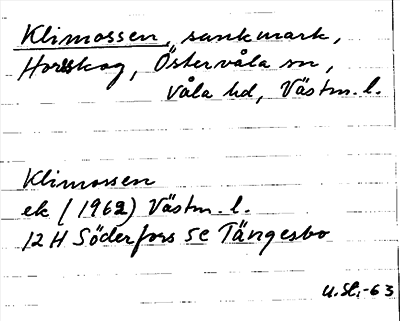 Klimossen, sankmark,
Horsskog, Östervåla sn,
Våla hd, Västm. l.
Klimossen
ek (1962) Västm. l.
12 H Söderfors SC Tängesbo
U.St.-63